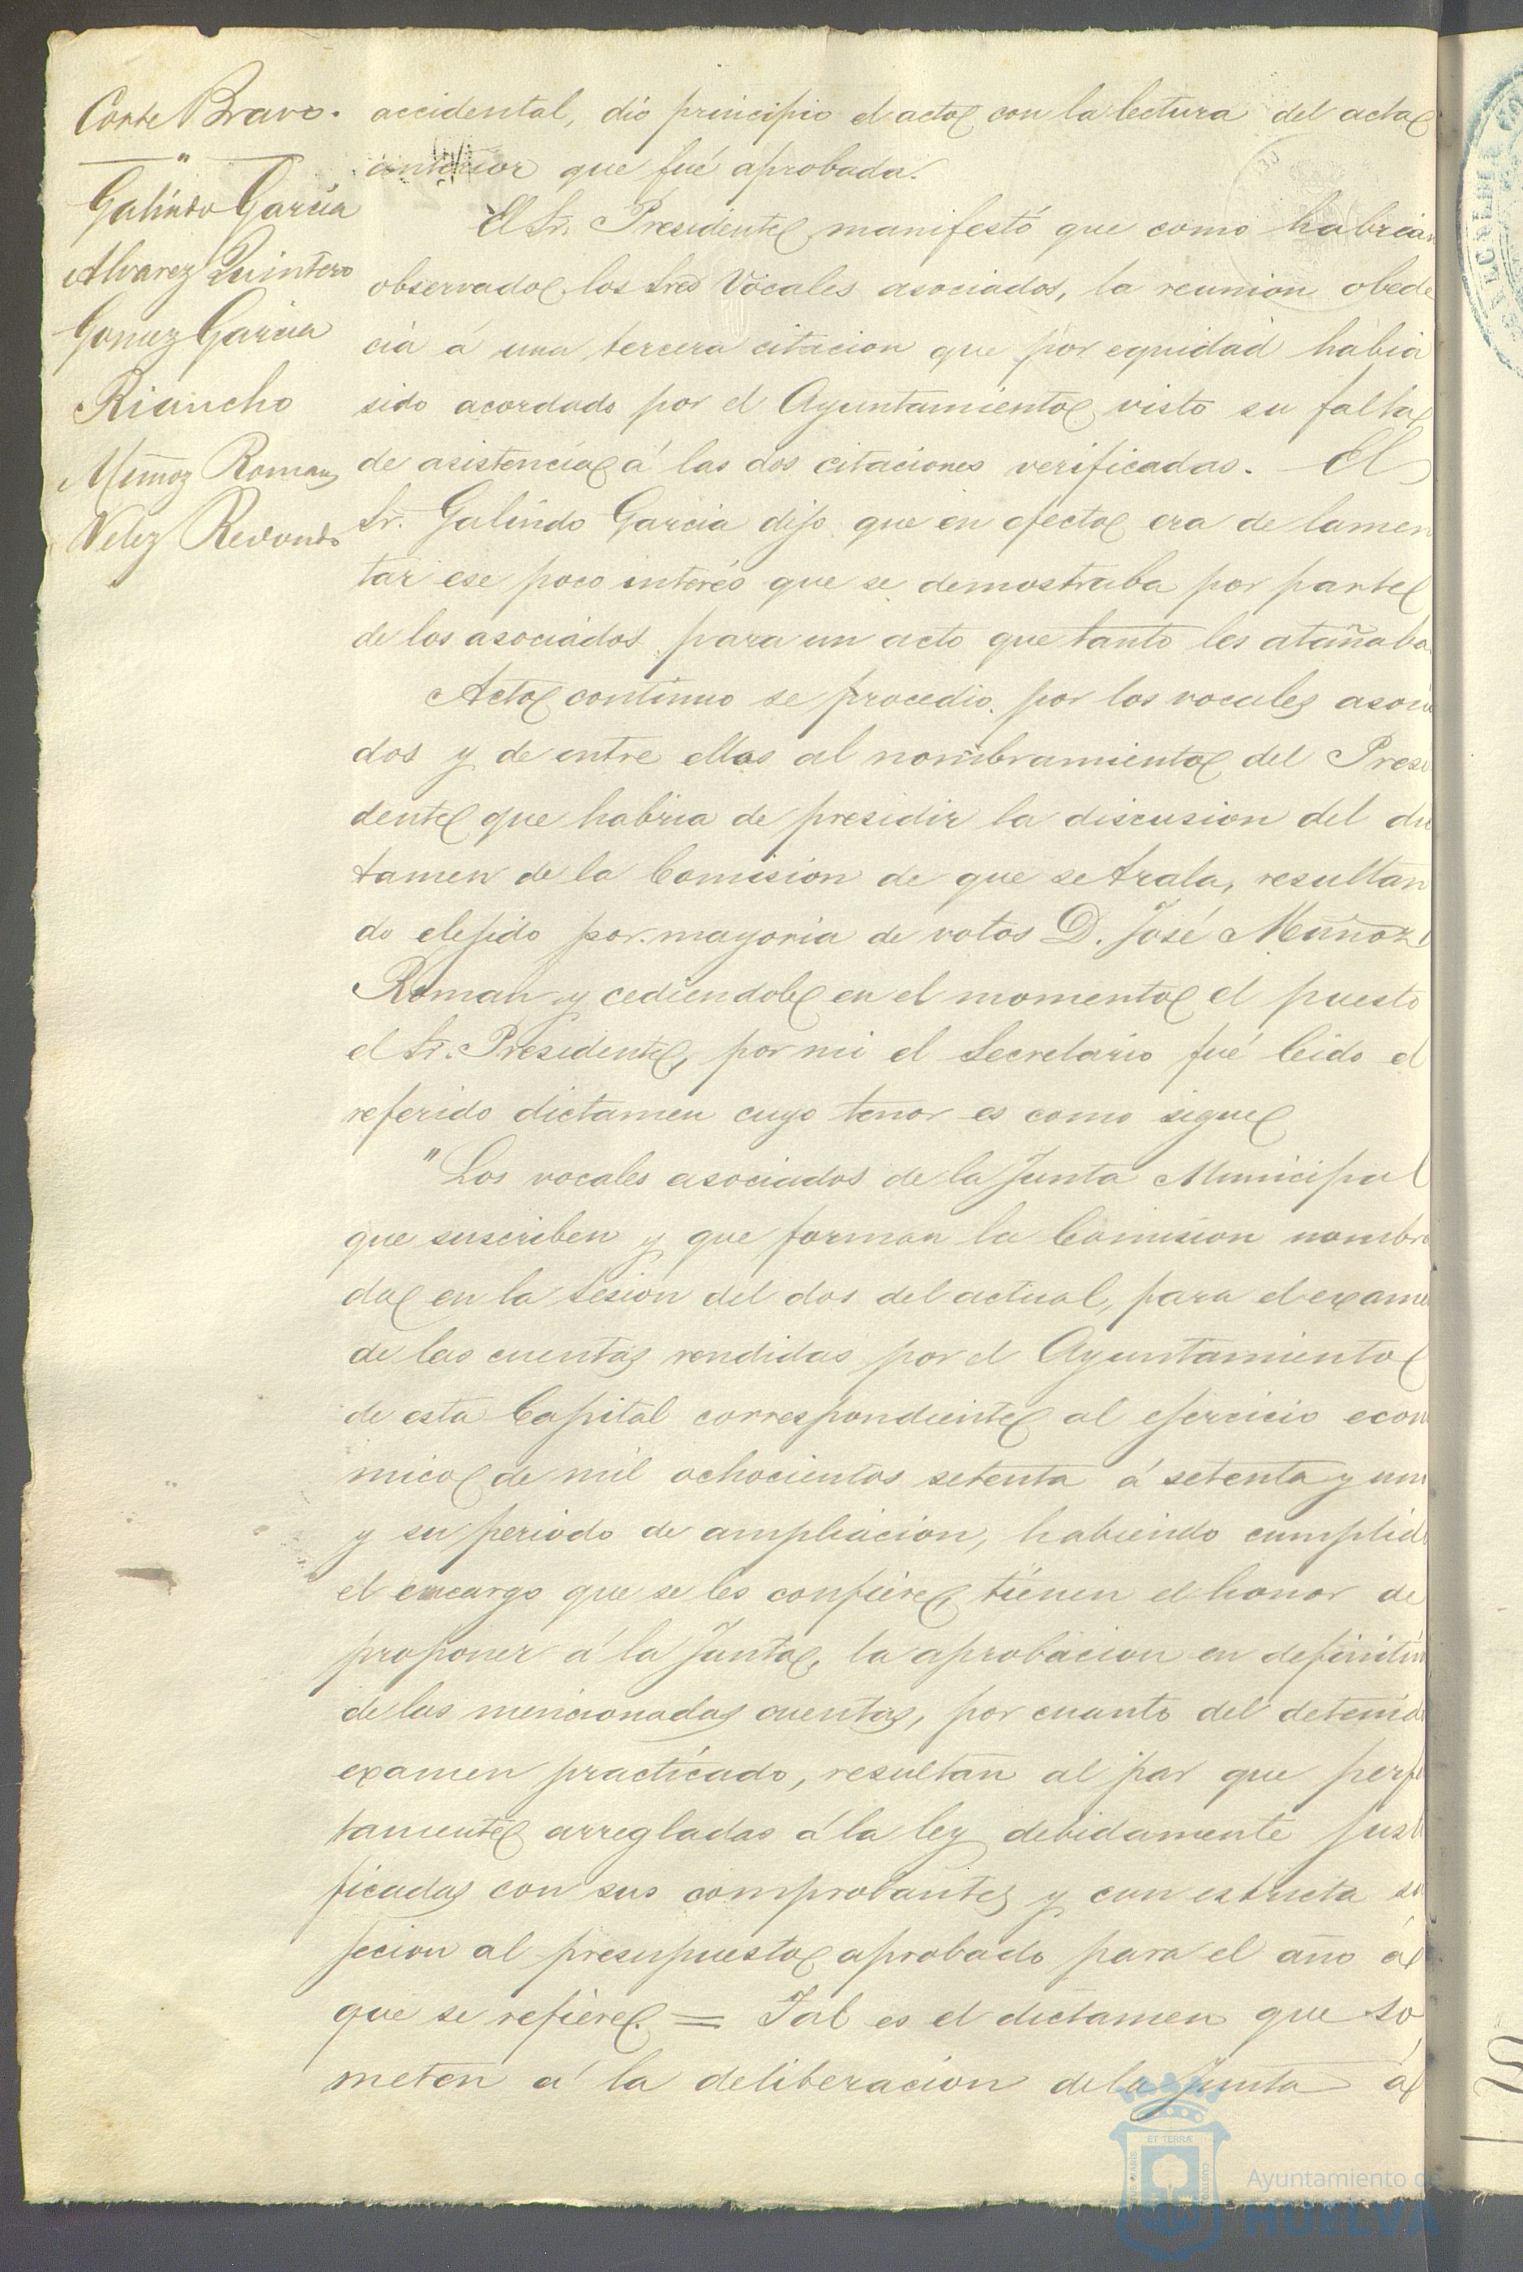 Corte Bravo.
"
Galindo Garcia
Alvarez Quintero
Gomez Garcia
Riancho
Muñoz Roman
Velez Redondo
accidental, dió principio el acto con la lectura del acta
anterior que fué aprobada.
El Sr. Presidente manifestó que como habrian
observado los Sres Vocales asociados, la reunion obede
cia á una tercera citacion que por equidad habia
sido acordado por el Ayuntamiento visto su falta
de asistencia á las dos citaciones verificadas. El
Sr. Galindo Garcia dijo que en efecto era de lamen
tar ese poco interés que se demostraba por parte
de los asociados para un acto que tanto les atañaba
Acto continuo se procedio por los vocales asocia
dos y de entre ellos al nombramiento del Presi
dente que habria de presidir la discusion del dic
tamen de la Comision de que se trata, resultan
do elejido por mayoria de votos D. José Muñoz
Roman y cediendole en el momento el puesto
el Sr. Presidente, por mi el Secretario fué leido el
referido dictamen cuyo tenor es como sigue
"Los vocales asociados de la Junta Municipal
que suscriben y que forman la Comision nombra
da en la sesion del dos del actual, para el examen
de las cuentas rendidas por el Ayuntamiento
de esta Capital correspondiente al ejercicio econo
mico de mil ochocientos setenta á setenta y uno
y su periodo de ampliacion, habiendo cumplido
el encargo que se les confiere, tienen el honor de
proponer á la Junta, la aprobacion en definitiva
de las mencionadas cuentas, por cuanto del detenido
examen practicado, resultan al par que perfec
tamente arregladas á la ley debidamente justi
ficadas con sus comprobantes y con estricta su
jecion al presupuesto aprobado para el año á
que se refiere. = Tal es el dictamen que so
meten á la deliberacion de la Junta á
Ayuntamiento de
HUELVA